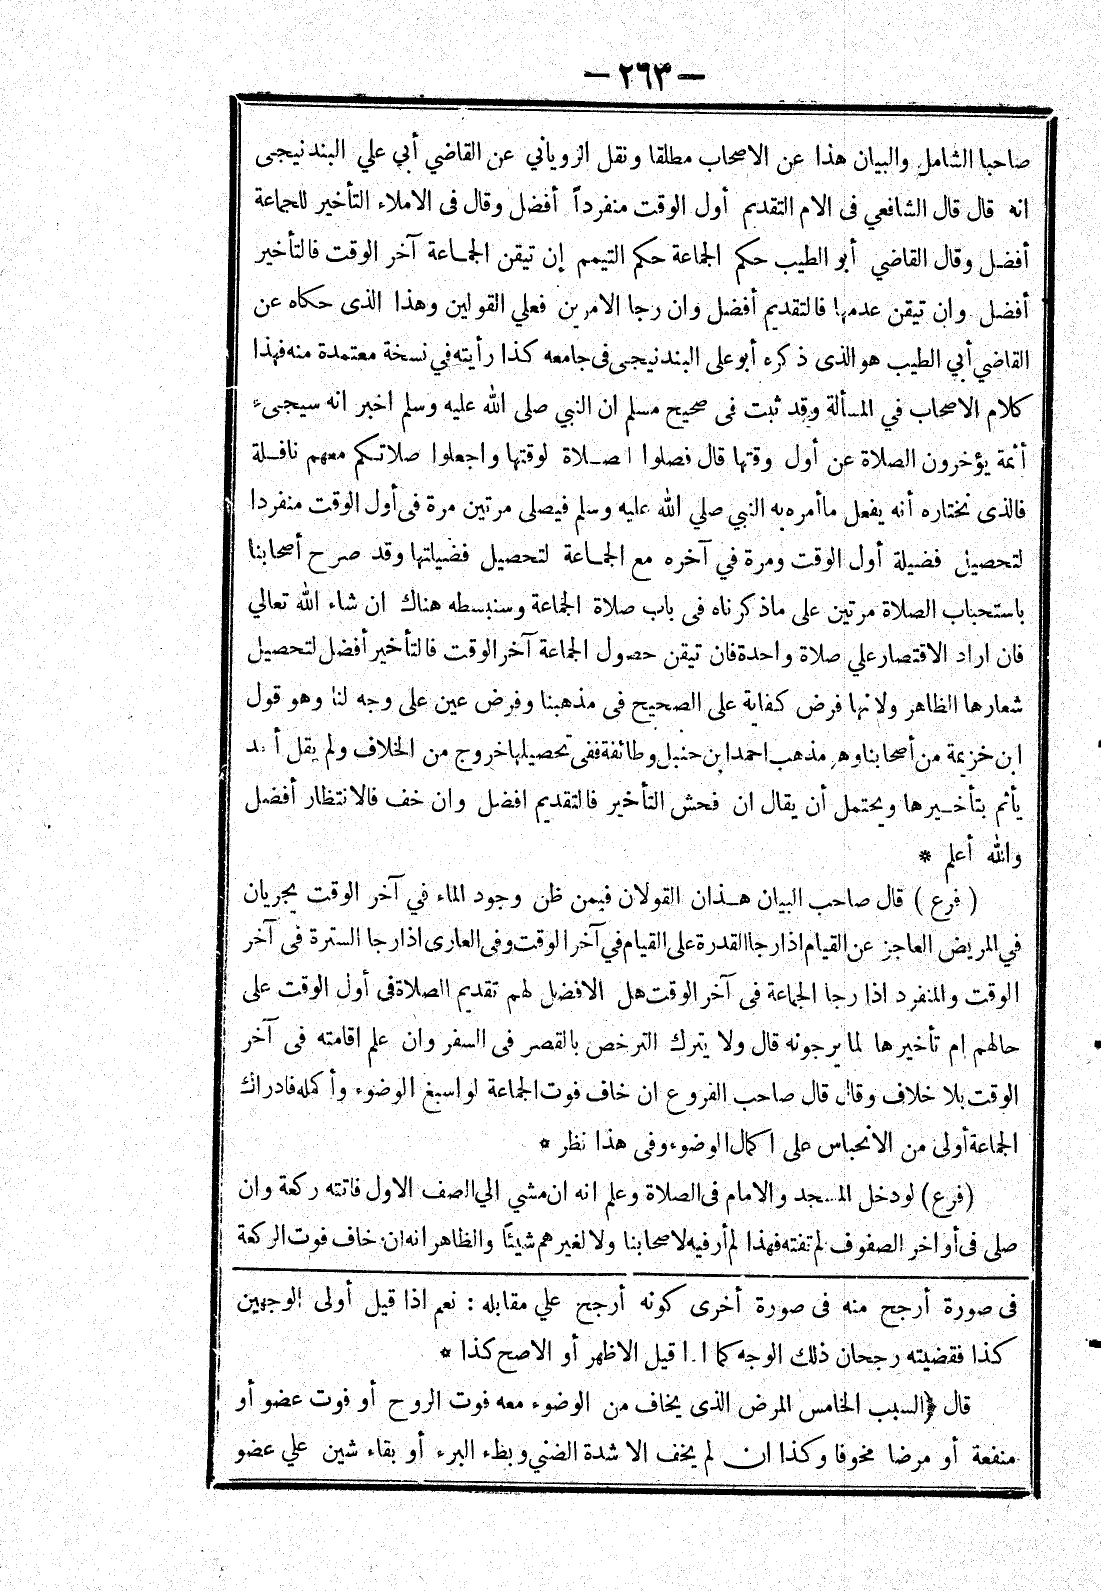 — ٢٦٣ —
صاحبا الشامل والبيان هذا عن الاصحاب مطلقا ونقل الروياني عن القاضي أبي علي البندنيجى
انه قال قال الشافعي فى الام التقديم أول الوقت منفرداً أفضل وقال فى الاملاء التأخير للجماعة
أفضل وقال القاضي أبو الطيب حكم الجماعة حكم التيمم إن تيقن الجماعة آخر الوقت فالتأخير
أفضل وان تيقن عدمها فالتقديم أفضل وان رجا الامرين فعلي القولين وهذا الذى حكاه عن
القاضي أبي الطيب هو الذى ذكره أبو على البندنيجى فى جامعه كذا رأيته في نسخة معتمدة منه فهذا
كلام الاصحاب في المسألة وقد ثبت فى صحيح مسلم ان النبي صلى الله عليه وسلم اخبر انه سيجىء
أئمة يؤخرون الصلاة عن أول وقتها قال فصلوا الصلاة لوقتها واجعلوا صلاتكم معهم نافلة
فالذى نختاره أنه يفعل ماأمره به النبي صلي الله عليه وسلم فيصلى مرتين مرة فى أول الوقت منفردا
لتحصيل فضيلة أول الوقت ومرة في آخره مع الجماعة لتحصيل فضيلتها وقد صرح أصحابنا
باستحباب الصلاة مرتين على ماذكرناه فى باب صلاة الجماعة وسنبسطه هناك ان شاء الله تعالي
فان اراد الاقتصار علي صلاة واحدة فان تيقن حصول الجماعة آخر الوقت فالتأخير أفضل لتحصيل
شعارها الظاهر ولانها فرض كفاية على الصحيح فى مذهبنا وفرض عين على وجه لنا وهو قول
ابن خزيمة من أصحابنا وهو مذهب احمد ابن حنبل وطائفة ففى تحصيلها خروج من الخلاف ولم يقل أحد
يأثم بتأخيرها ويحتمل أن يقال ان فحش التأخير فالتقديم افضل وان خف فالانتظار أفضل
والله أعلم *
( فرع ) قال صاحب البيان هذان القولان فيمن ظن وجود الماء في آخر الوقت يجريان
في المريض العاجز عن القيام اذا رجا القدرة على القيام في آخر الوقت وفى العارى اذا رجا السترة فى آخر
الوقت والمنفرد اذا رجا الجماعة فى آخر الوقت هل الافضل لهم تقديم الصلاة فى أول الوقت على
حالهم إم تأخيرها لما يرجونه قال ولا يترك الترخص بالقصر فى السفر وان علم اقامته فى آخر
الوقت بلا خلاف وقال قال صاحب الفروع ان خاف فوت الجماعة لو اسبغ الوضوء وأكمله فادراك
الجماعة أولى من الانحباس على اكمال الوضوء وفى هذا نظر *
(فرع) لو دخل المسجد والامام فى الصلاة وعلم انه ان مشي الي الصف الاول فاتته ركعة وان
صلى فى أواخر الصفوف لم تفته فهذا لم أر فيه لاصحابنا ولا لغيرهم شيئًا والظاهر انه ان خاف فوت الركعة
فى صورة أرجح منه فى صورة أخرى كونه أرجح علي مقابله : نعم اذا قيل أولى الوجهين
كذا فقضيته رجحان ذلك الوجه كما اذا قيل الاظهر أو الاصح كذا *
قال ﴿السبب الخامس المرض الذى يخاف من الوضوء معه فوت الروح أو فوت عضو أو
منفعة أو مرضا مخوفا وكذا ان لم يخف الا شدة الضني وبظء البرء أو بقاء شين علي عضو